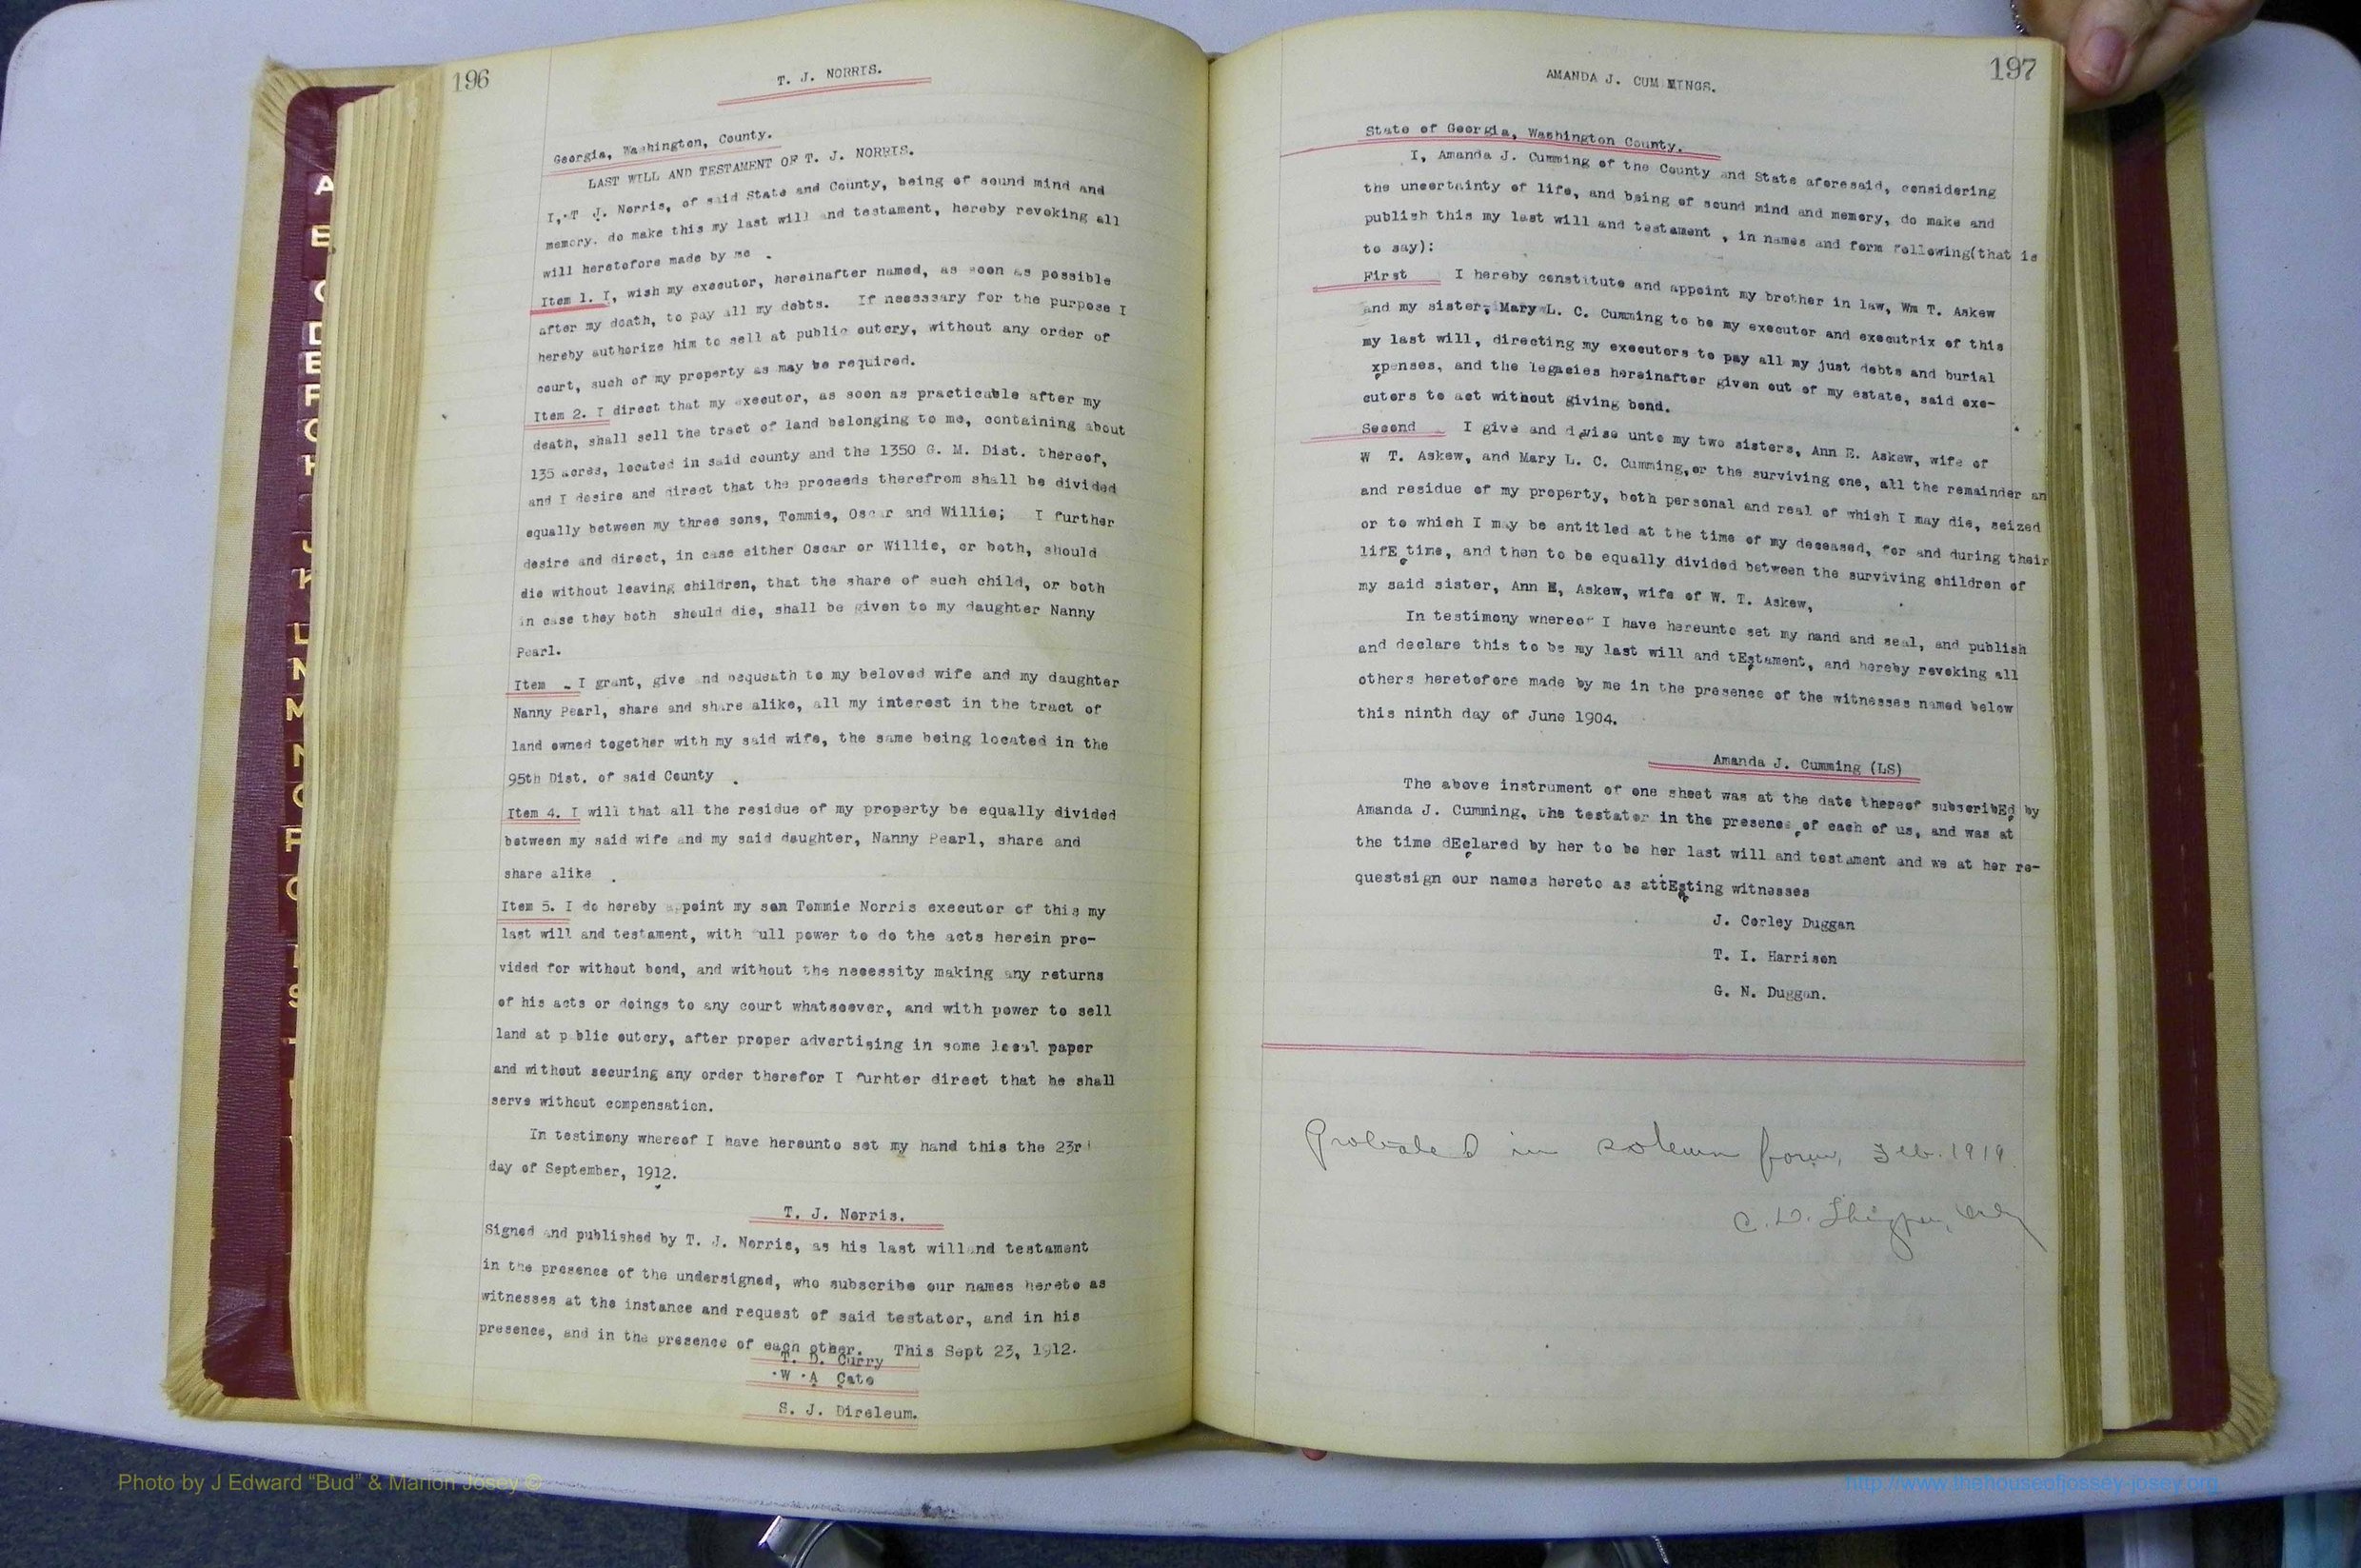 196
T. J. NORRIS.
Georgia, Washington, County.
LAST WILL AND TESTAMENT OF T. J. NORRIS.
I, T J. Norris, of said State and County, being of sound mind and
memory. do make this my last will and testament, hereby revoking all
will heretofore made by me .
Item 1. I, wish my executor, hereinafter named, as soon as possible
after my death, to pay all my debts. If necessary for the purpose I
hereby authorize him to sell at public outcry, without any order of
court, such of my property as may be required.
Item 2. I direct that my executor, as soon as practicable after my
death, shall sell the tract of land belonging to me, containing about
135 acres, located in said county and the 1350 G. M. Dist. thereof,
and I desire and direct that the proceeds therefrom shall be divided
equally between my three sons, Tommie, Oscar and Willie; I further
desire and direct, in case either Oscar or Willie, or both, should
die without leaving children, that the share of such child, or both
in case they both should die, shall be given to my daughter Nanny
Pearl.
Item I grant, give and bequeath to my beloved wife and my daughter
Nanny Pearl, share and share alike, all my interest in the tract of
land owned together with my said wife, the same being located in the
95th Dist. of said County .
Item 4. I will that all the residue of my property be equally divided
between my said wife and my said daughter, Nanny Pearl, share and
share alike .
Item 5. I do hereby appoint my son Tommie Norris executor of this my
last will and testament, with full power to do the acts herein pro-
vided for without bond, and without the necessity making any returns
of his acts or doings to any court whatsoever, and with power to sell
land at p blic outcry, after proper advertising in some local paper
and without securing any order therefor I furhter direct that he shall
serve without compensation.
In testimony whereof I have hereunto set my hand this the 23rd
day of September, 1912.
T. J. Norris.
Signed and published by T. J. Norris, as his last will and testament
in the presence of the undersigned, who subscribe our names hereto as
witnesses at the instance and request of said testator, and in his
presence, and in the presence of each other. This Sept 23, 1912.
T. D. Curry
W A Cato
S. J. Direleum.
197
AMANDA J. CUM MINGS.
State of Georgia, Washington County.
I, Amanda J. Cumming of the County and State aforesaid, considering
the uncertainty of life, and being of sound mind and memory, do make and
publish this my last will and testament , in names and form following(that is
to say):
First I hereby constitute and appoint my brother in law, Wm T. Askew
and my sister, Mary L. C. Cumming to be my executor and executrix of this
my last will, directing my executors to pay all my just debts and burial
xpenses, and the legacies hereinafter given out of my estate, said exe-
cutors to act without giving bond.
Second I give and devise unto my two sisters, Ann E. Askew, wife of
W T. Askew, and Mary L. C. Cumming,or the surviving one, all the remainder an
and residue of my property, both personal and real of which I may die, seized
or to which I may be entitled at the time of my deceased, for and during their
lifE time, and then to be equally divided between the surviving children of
my said sister, Ann E, Askew, wife of W. T. Askew,
In testimony whereof I have hereunto set my hand and seal, and publish
and declare this to be my last will and tEstament, and hereby revoking all
others heretofore made by me in the presence of the witnesses named below
this ninth day of June 1904.
Amanda J. Cumming (LS)
The above instrument of one sheet was at the date thereof subscribEd by
Amanda J. Cumming, the testator in the presence of each of us, and was at
the time dEclared by her to be her last will and testament and we at her re-
questsign our names hereto as attEsting witnesses
J. Corley Duggan
T. I. Harrison
G. N. Duggan.
Probated in solemn form, Feb. 1919
C. D. Thigpen, Ordy
Photo by J Edward “Bud” & Marion Josey ©
http://www.thehouseofjossey-josey.org